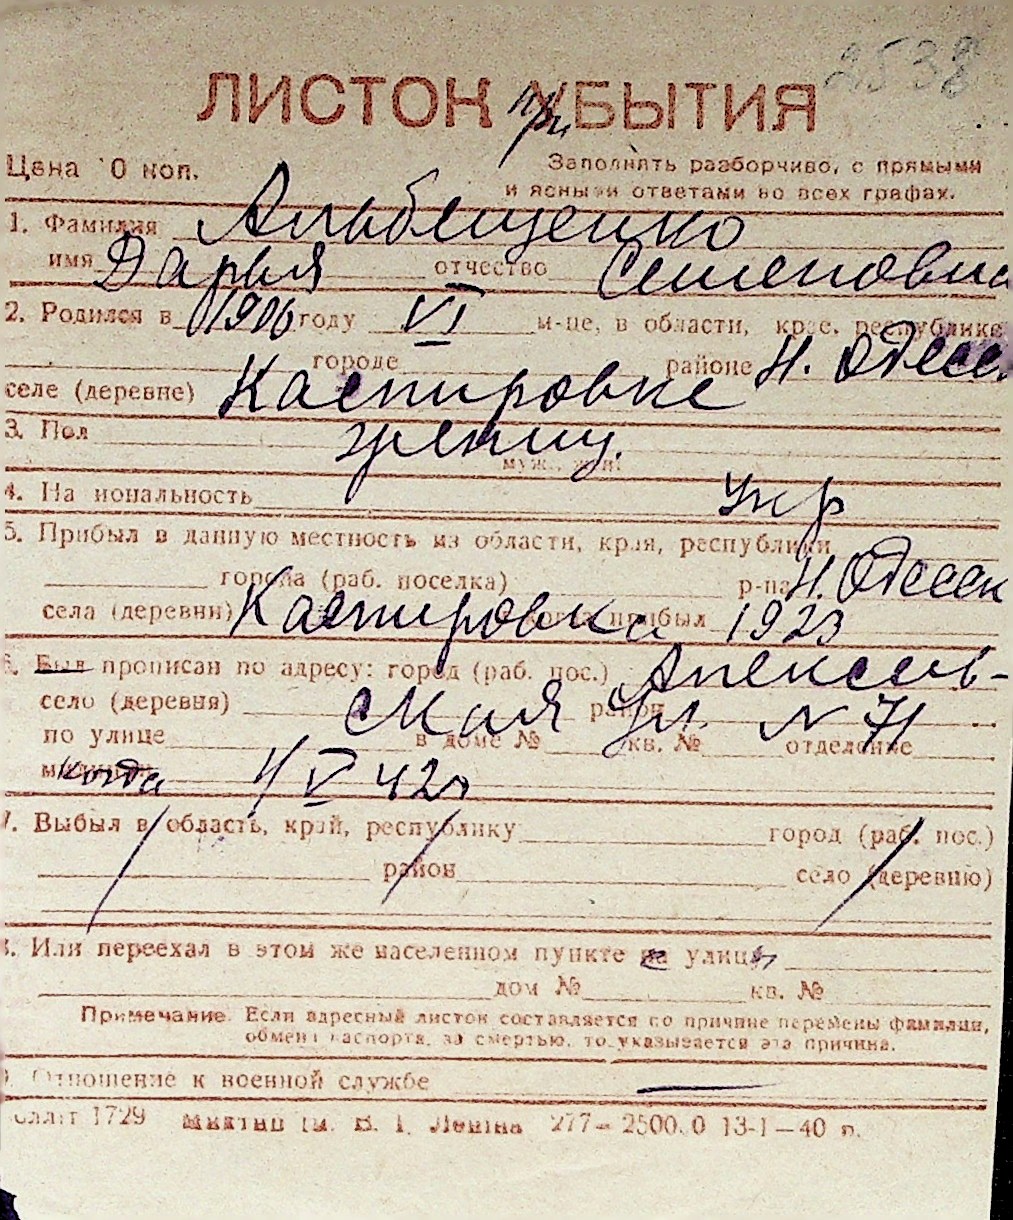 2538
ЛИСТОК УБЫТИЯ
при
Цена 10 коп. Заполнять разборчиво, с прямыми
и ясными ответами во всех графах.
1. Фамилия Альбещенко
имя Дарья отчество Семеновна
2. Родился в 1906 году VI м-це, в области, крае, республике
городе районе Н. Одесск
селе (деревне) Каспировке
3. Пол женщ.
муж., жен.
4. Национальность укр
5. Прибыл в данную местность из области, края, республики
города (раб. поселка) р-на Н. Одесск
села (деревни) Каспировка прибыл 1923
6. Был прописан по адресу: город (раб. пос.) Апексель-
село (деревня) ская район ул. N 71
по улице в доме № кв. № отделение
милиции когда 1/V 42г
7. Выбыл в область, край, республику город (раб. пос.)
район село (деревню)
8. Или переехал в этом же населенном пункте на улицу
дом № кв. №
Примечание. Если адресный листок составляется по причине перемены фамилии,
обмена паспорта, за смертью, то указывается эта причина.
9. Отношение к военной службе —
1729 им. В. І. Леніна 277 — 2500.0 13-I—40 р.